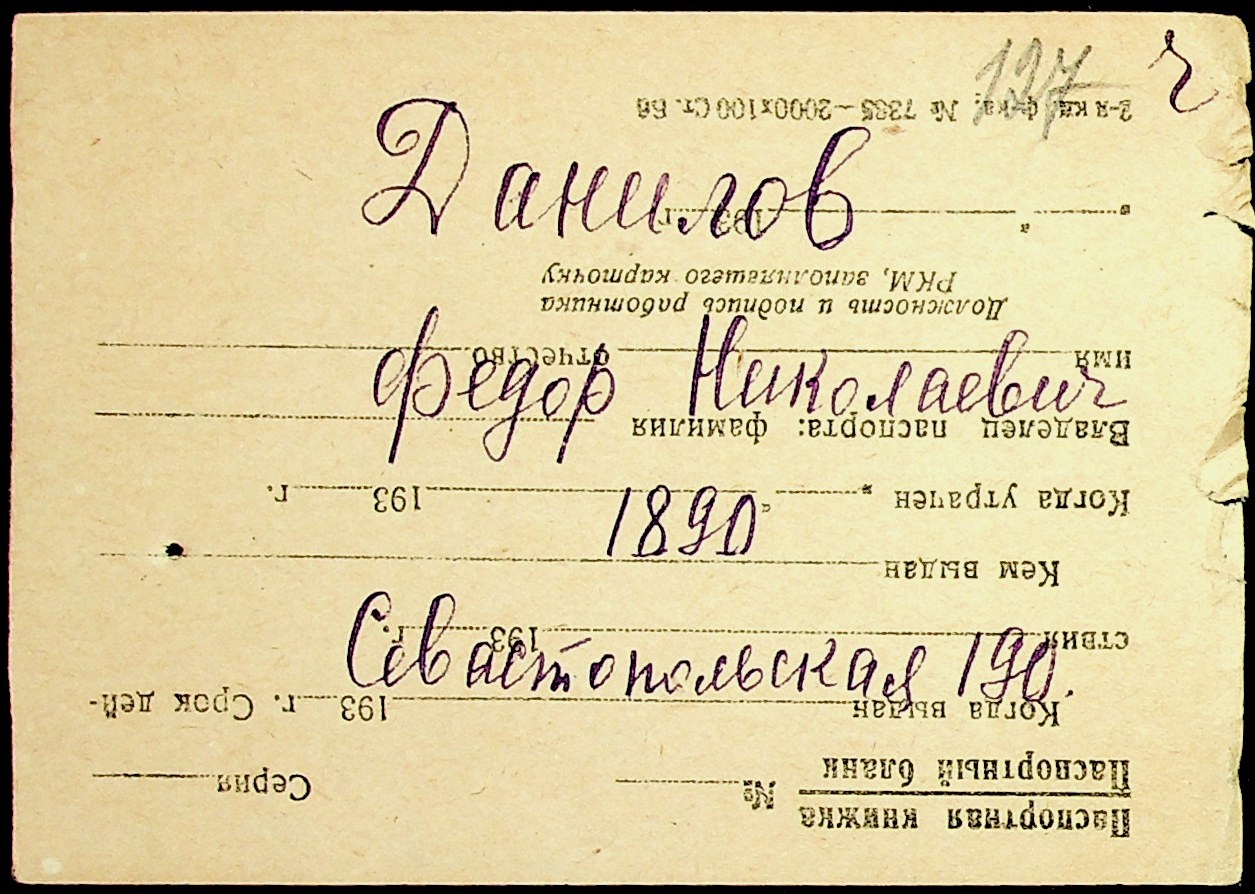 127
Данилов
Федор Николаевич
1890
Севастопольская 190.
Паспортная книжка
Паспортный бланк № Серия
Когда выдан 193 г. Срок дей-
ствия 193 г.
Кем выдан
Когда утрачен „ “ 193 г.
Владелец паспорта: фамилия
имя отчество
Должность и подпись работника
РКМ, заполнявшего карточку
„ “ 193 г.
№ 7385—2000х100 Ст. 66